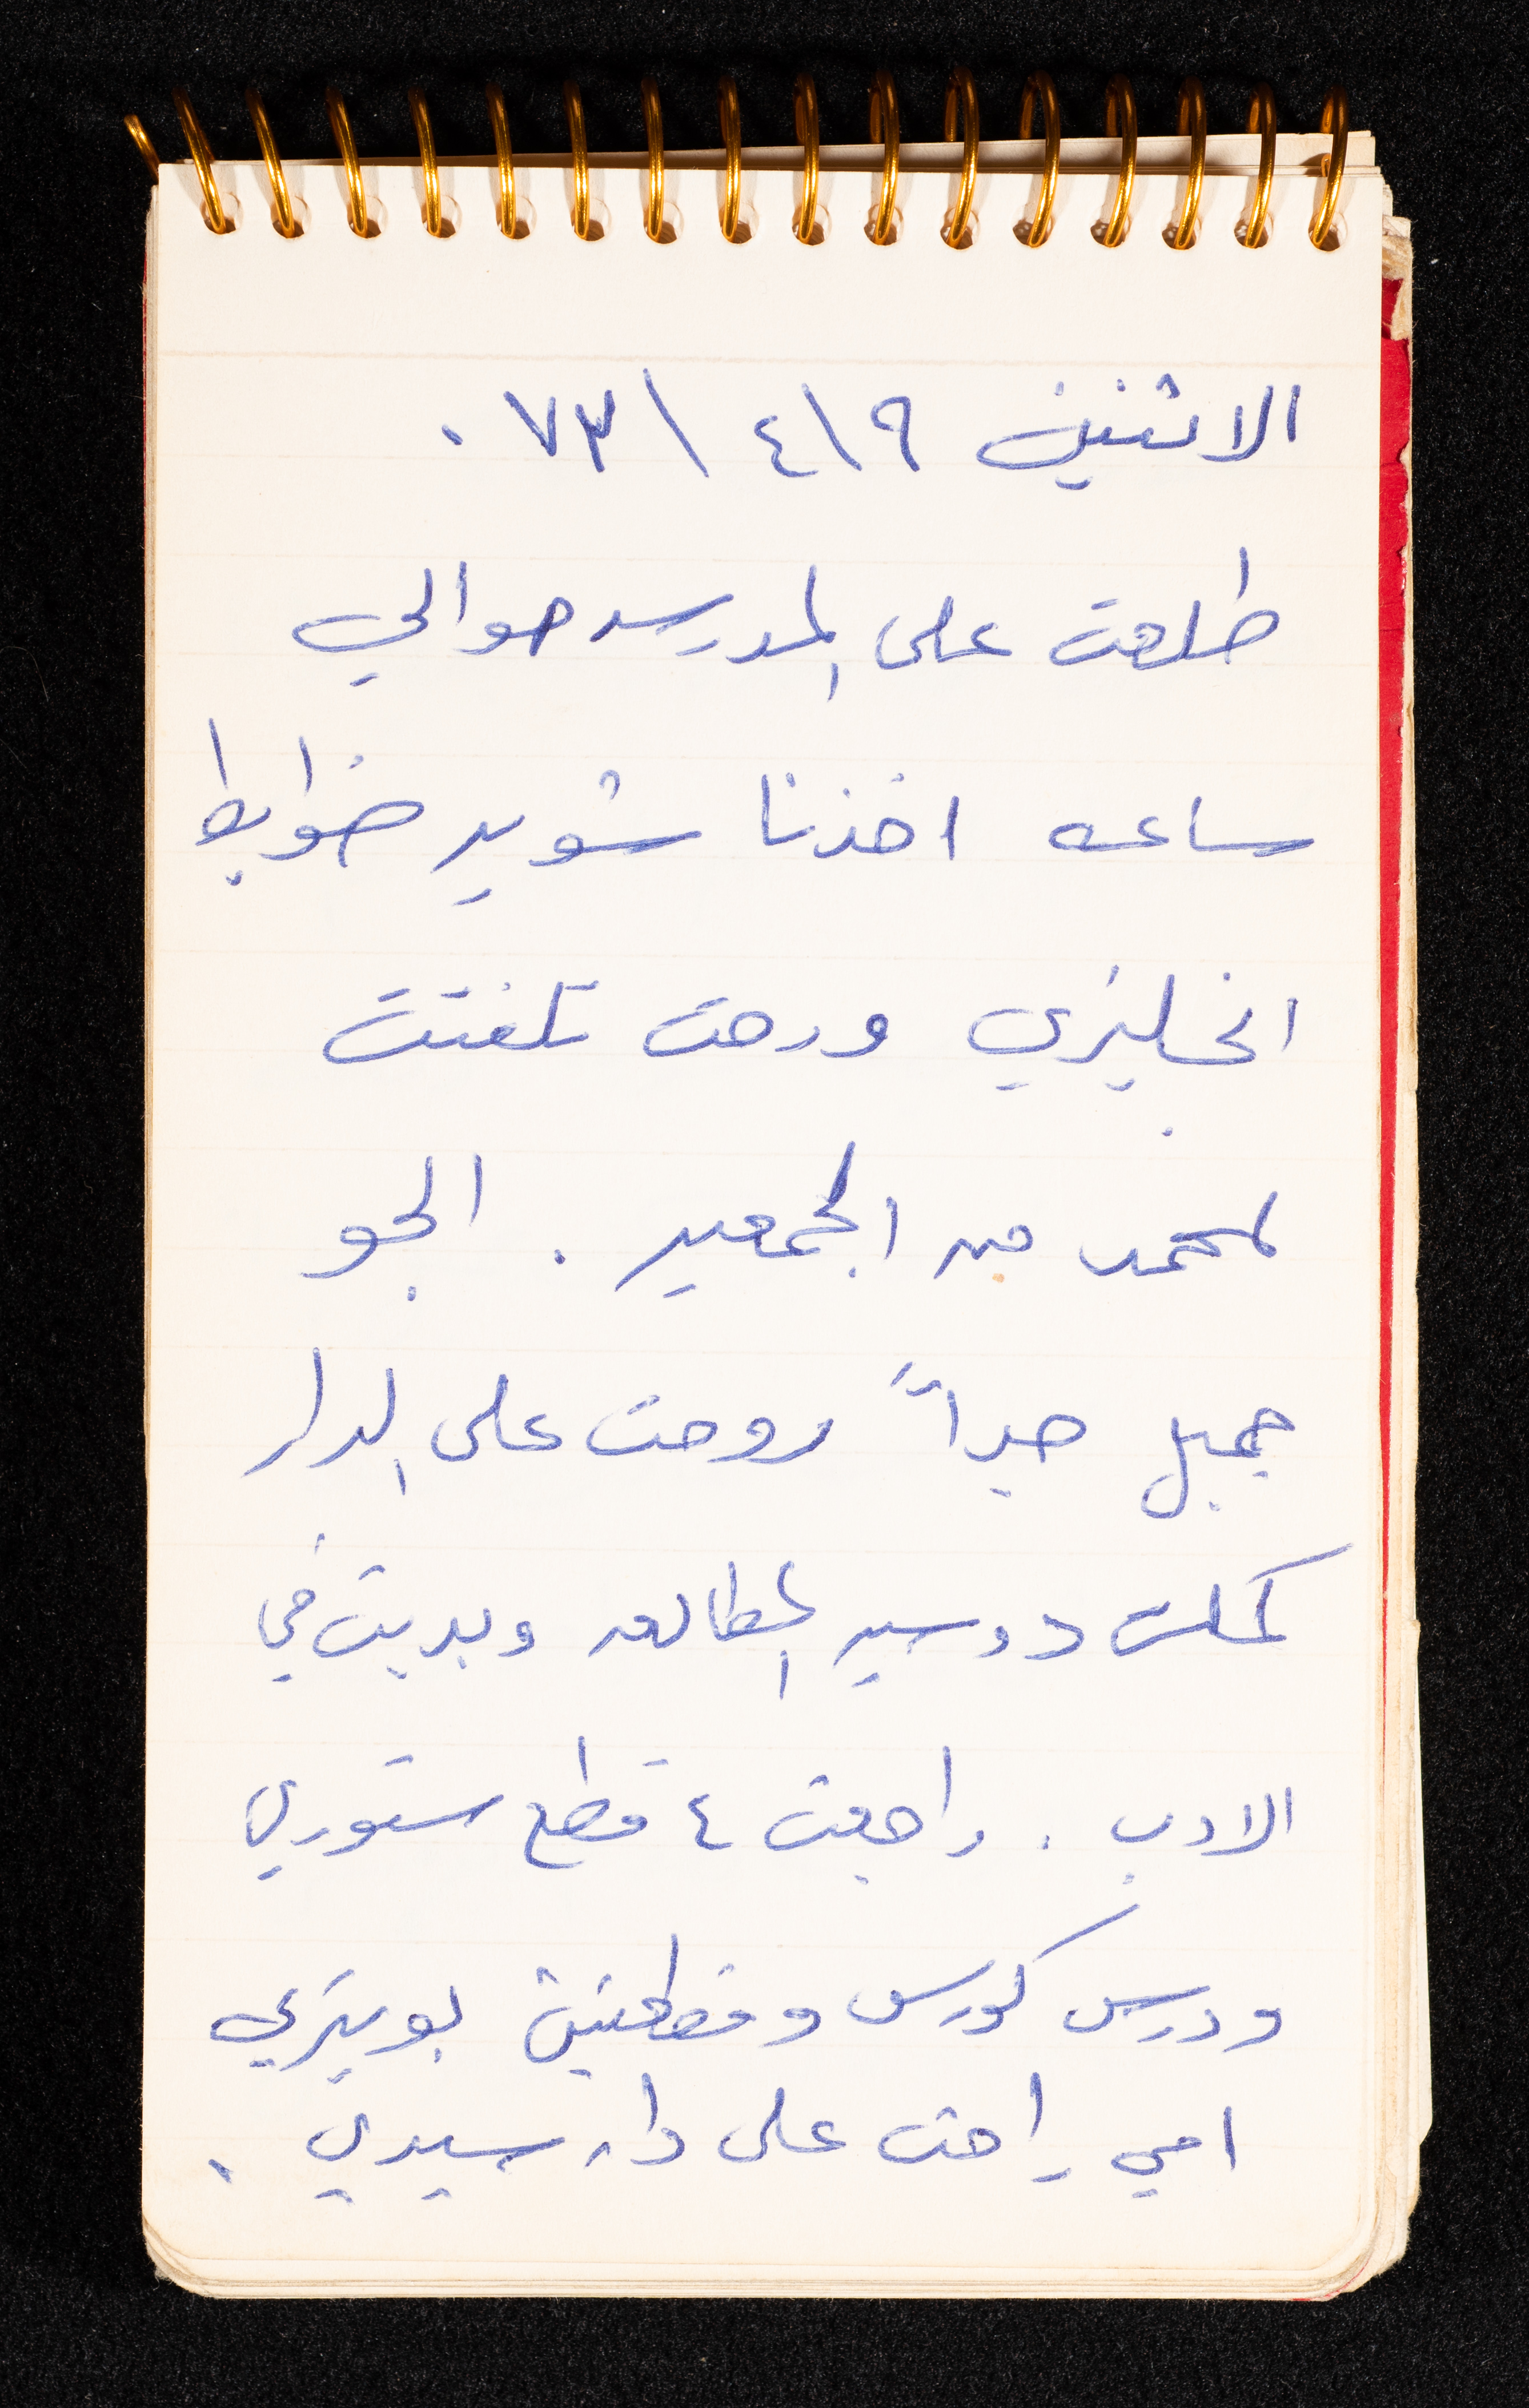 الاثنين ٩\٤\٧٣ .
طلعت على المدرسه حوالي
ساعه اخذنا شويه ضوابط
انجليزي ورحت تلفنت
لمحمد من الجمعيه . الجو
جميل جداً روحت على الدار
كملت دوسيه المطالعه وبديت في
الادب . راجعت ٤ قطع ستوري
ودرس كورس وقطعتين بويتري
امي راحت على دار سيدي .